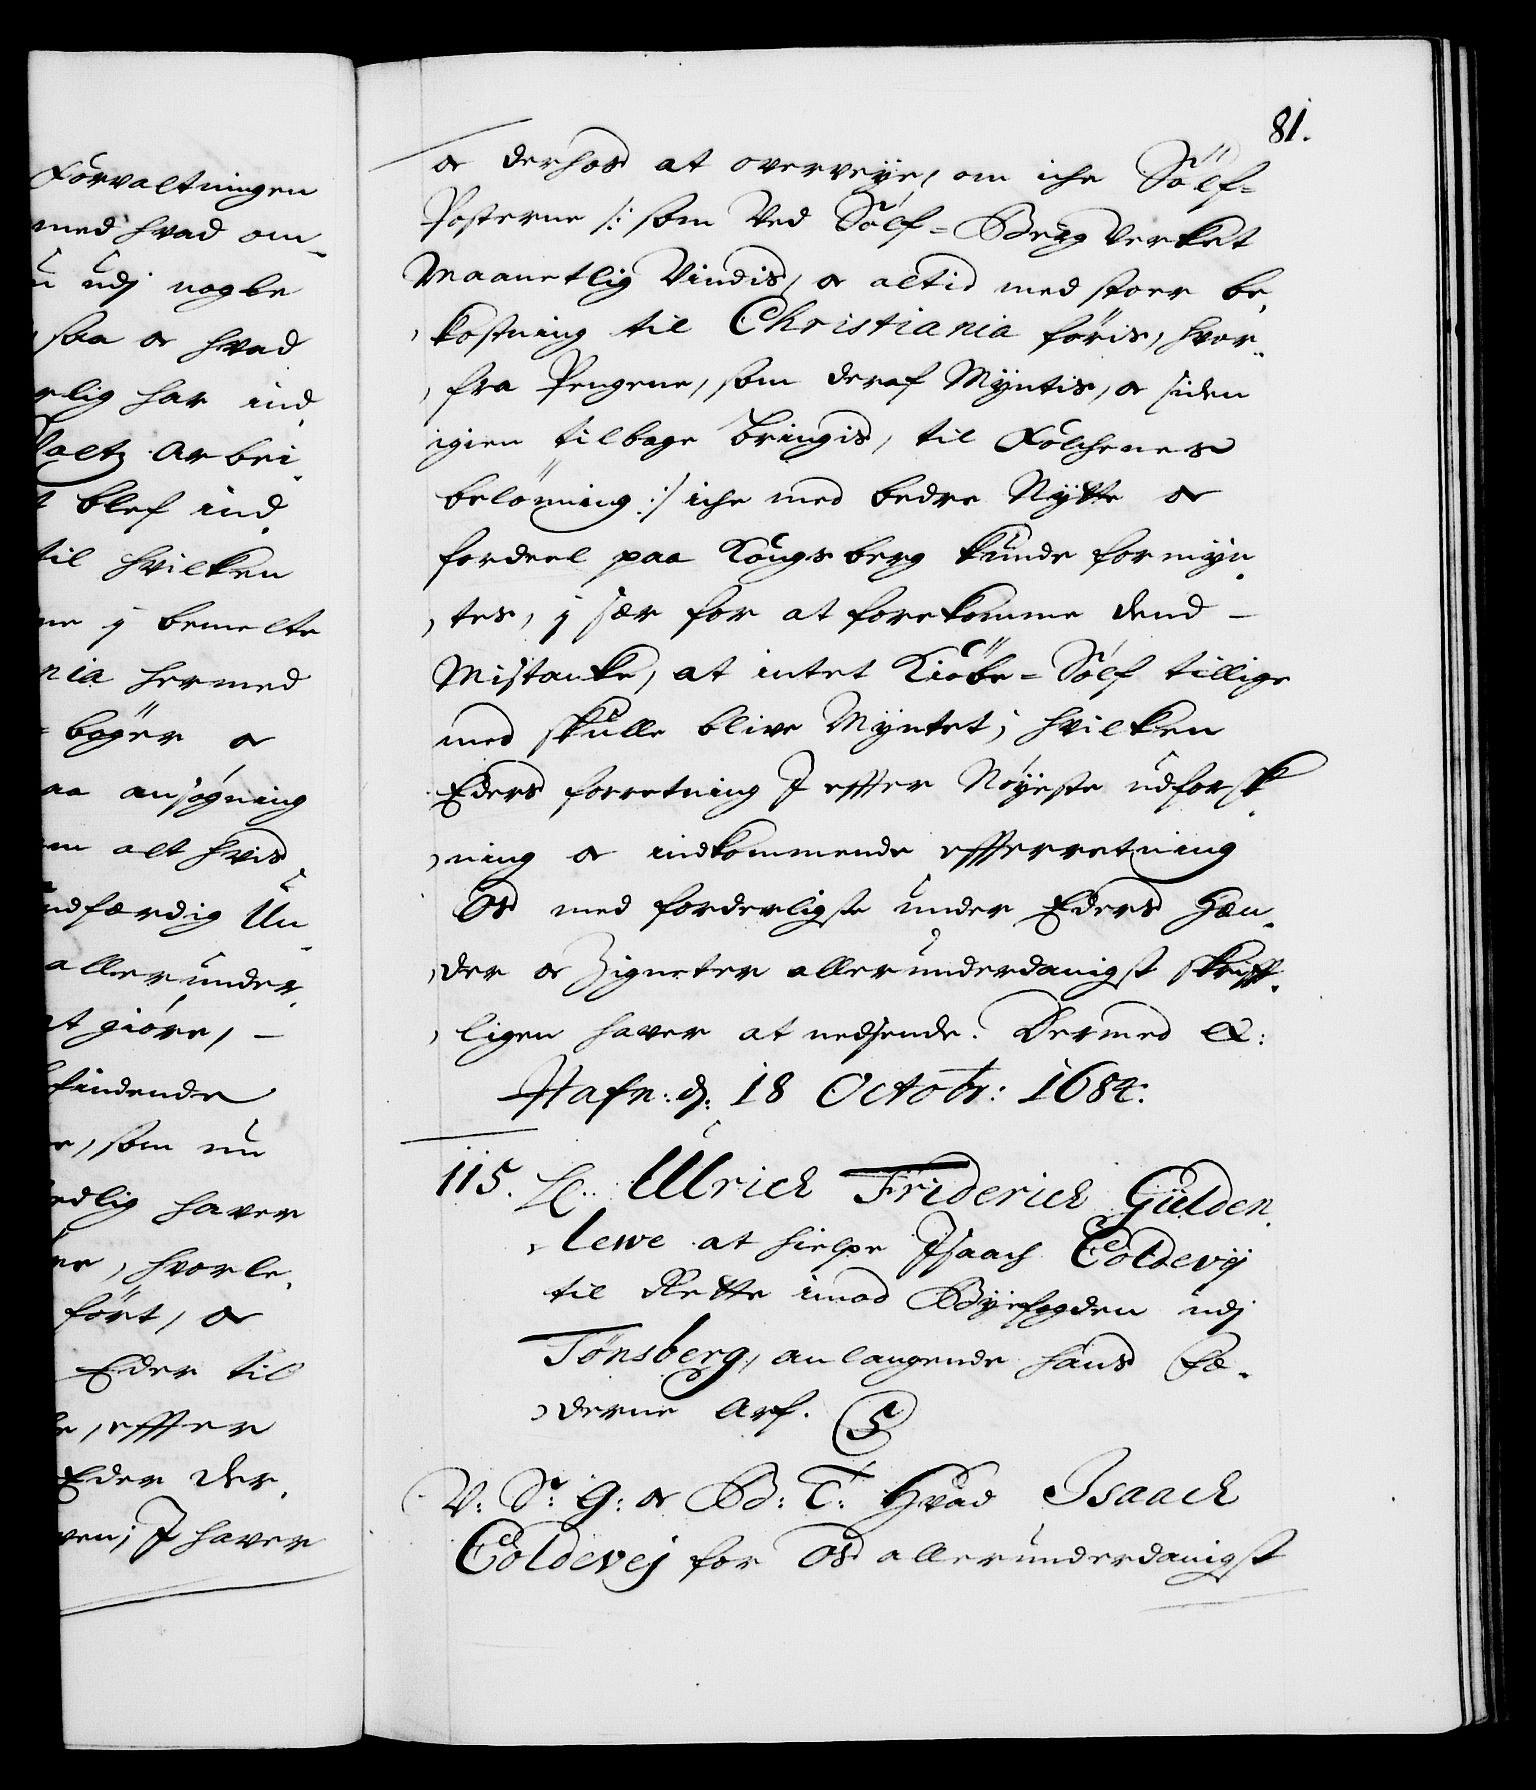 Forvaltningen
med hvad om„
u udj nogle
saa oc hvad
rlig har ind„
Saltz Arbei„
t blef ind„
til hvilken
ne i bemelte
nia hermed
bøger oc
aa ansøgning
om alt hvis
udfærdig Un„
allerunder„
at giöre, –
findende
e, som nu
edlig haver
ne, hvorle„
fört, oc
Eder til
e, effter
Eder der„
ven; J haver
81.
oc derhos at overveye, om iche Sölf=
Posterne /: som Ved Sölf=BergVerket
Maanetlig Vindis, oc altid med stoer be„
„kostning til Christiania föris, hvor„
„fra Pengene, som deraf Myntis, oc siden
igien tilbage bringis, til Folchenes
belönning :/ iche med bedre Nytte oc
fordeel paa Kongsberg kunde formyn„
„tes, i sær for at forekomme dend –
Mistanke, at intet Kiöbe=Sölf tillige
med skulle blive Myntet; hvilken
Eders forretning J effter Nöyeste udforsk„
„ning oc indkommende effterretning
Os med forderligste under Eders Hæn„
„der oc Zigneter allerunderdanigst skrifft„
„ligen haver at nedsende. Dermed &:
Hafn: d: 18 Octobr: 1684:
115. H: Ulrich Friderich Gülden„
„lewe at hielpe Jsaach Coldevij
til Rette imod Byefogden udj
Tönsberg, anlangende hans Fæ„
„derne Arf.
V: Sr: G: oc Bd: T: Hvad Isaach
Coldevej for Os allerunderdanigst